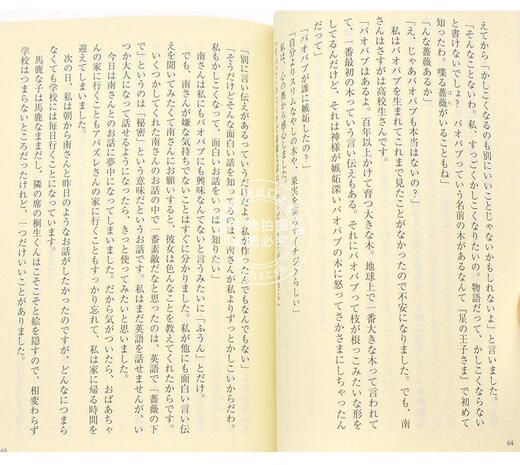 えてから「かしこくなるのも別にいいことじゃないかもしれないよ」と言いました。
「そんなことないわ。私、すっごくかしこくなりたいの。物語だって、かしこくならない
と書けないでしょ？　バオバブっていう名前の木があるなんて『星の王子さま』で初めて
知ったわ。喋る薔薇がいることもね」
「んな薔薇あるか」
「え、じゃあバオバブも本当はないの？」
私はバオバブを生まれてこれまで見たことがなかったので不安になりました。でも、南
さんはさすがは高校生さんです。
「バオバブはあるよ。百年以上かけて育つ大きな木。地球上で一番大きな木って言われて
て、一番最初の木っていう言い伝えもある。それにバオバブって枝が根っこみたいな形を
してるんだけど、それは神様が嫉妬深いバオバブの木に怒ってさかさまにしちゃったん
だって」
「バオバブが誰に嫉妬したの？」
「自分よりスリムなやしの木や、果実を実
イチジクらしい」
私は、心の奥から感心しました。
「別に言い伝えがあるってだけ
私が作ったんでもなんでもない」
「そうだけどそんな面白い話を知ってるのは、南さんが私よりずっとかしこいからだわ。
私もかしこくなって、面白いお話をいっぱい知りたい」
南さんは私にもバオバブにも興味なんてないと言うみたいに「ふうん」とだけ。
でも、南さんが嫌な気持ちでないことはすぐに分かりました。私が他にも面白い言い伝
えを聞いてみたくて南さんにお願いすると、彼女は色んなことを教えてくれたからです。
いくつかしてくれた南さんのお話の中で一番素敵だなと思ったのは、英語で「薔薇の下
で」というのは「秘密」という意味だというお話です。私はまだ英語を話せませんが、い
つか大人になって話せるようになったら、きっと使ってみたいと思いました。
今日は南さんとのお話に夢中になってしまいました。だから気がついたら、おばあちゃ
んの家に行くこともアバズレさんの家に行くこともすっかり忘れて、私は家に帰る時間を
迎えてしまいました。
次の日、私は朝から南さんと昨日のようなお話がしたかったのですが、どんなにつまら
なくても学校には毎日行くことになっています。
馬鹿な子は馬鹿なままだし、隣の席の桐生くんはこそこそと絵を隠すので、相変わらず
学校はつまらないところだったけれど、一つだけいいことがありました。
64
65